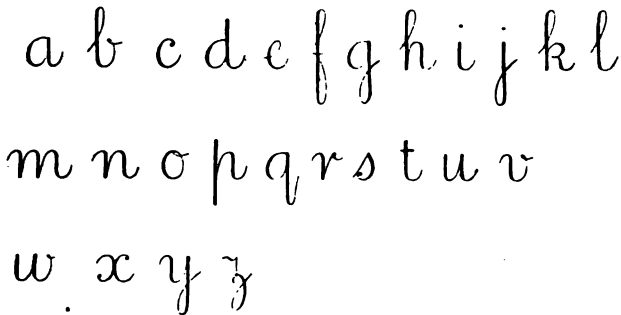 a b c d e f g h i j k l
m n o p q r s t u v
w x y z